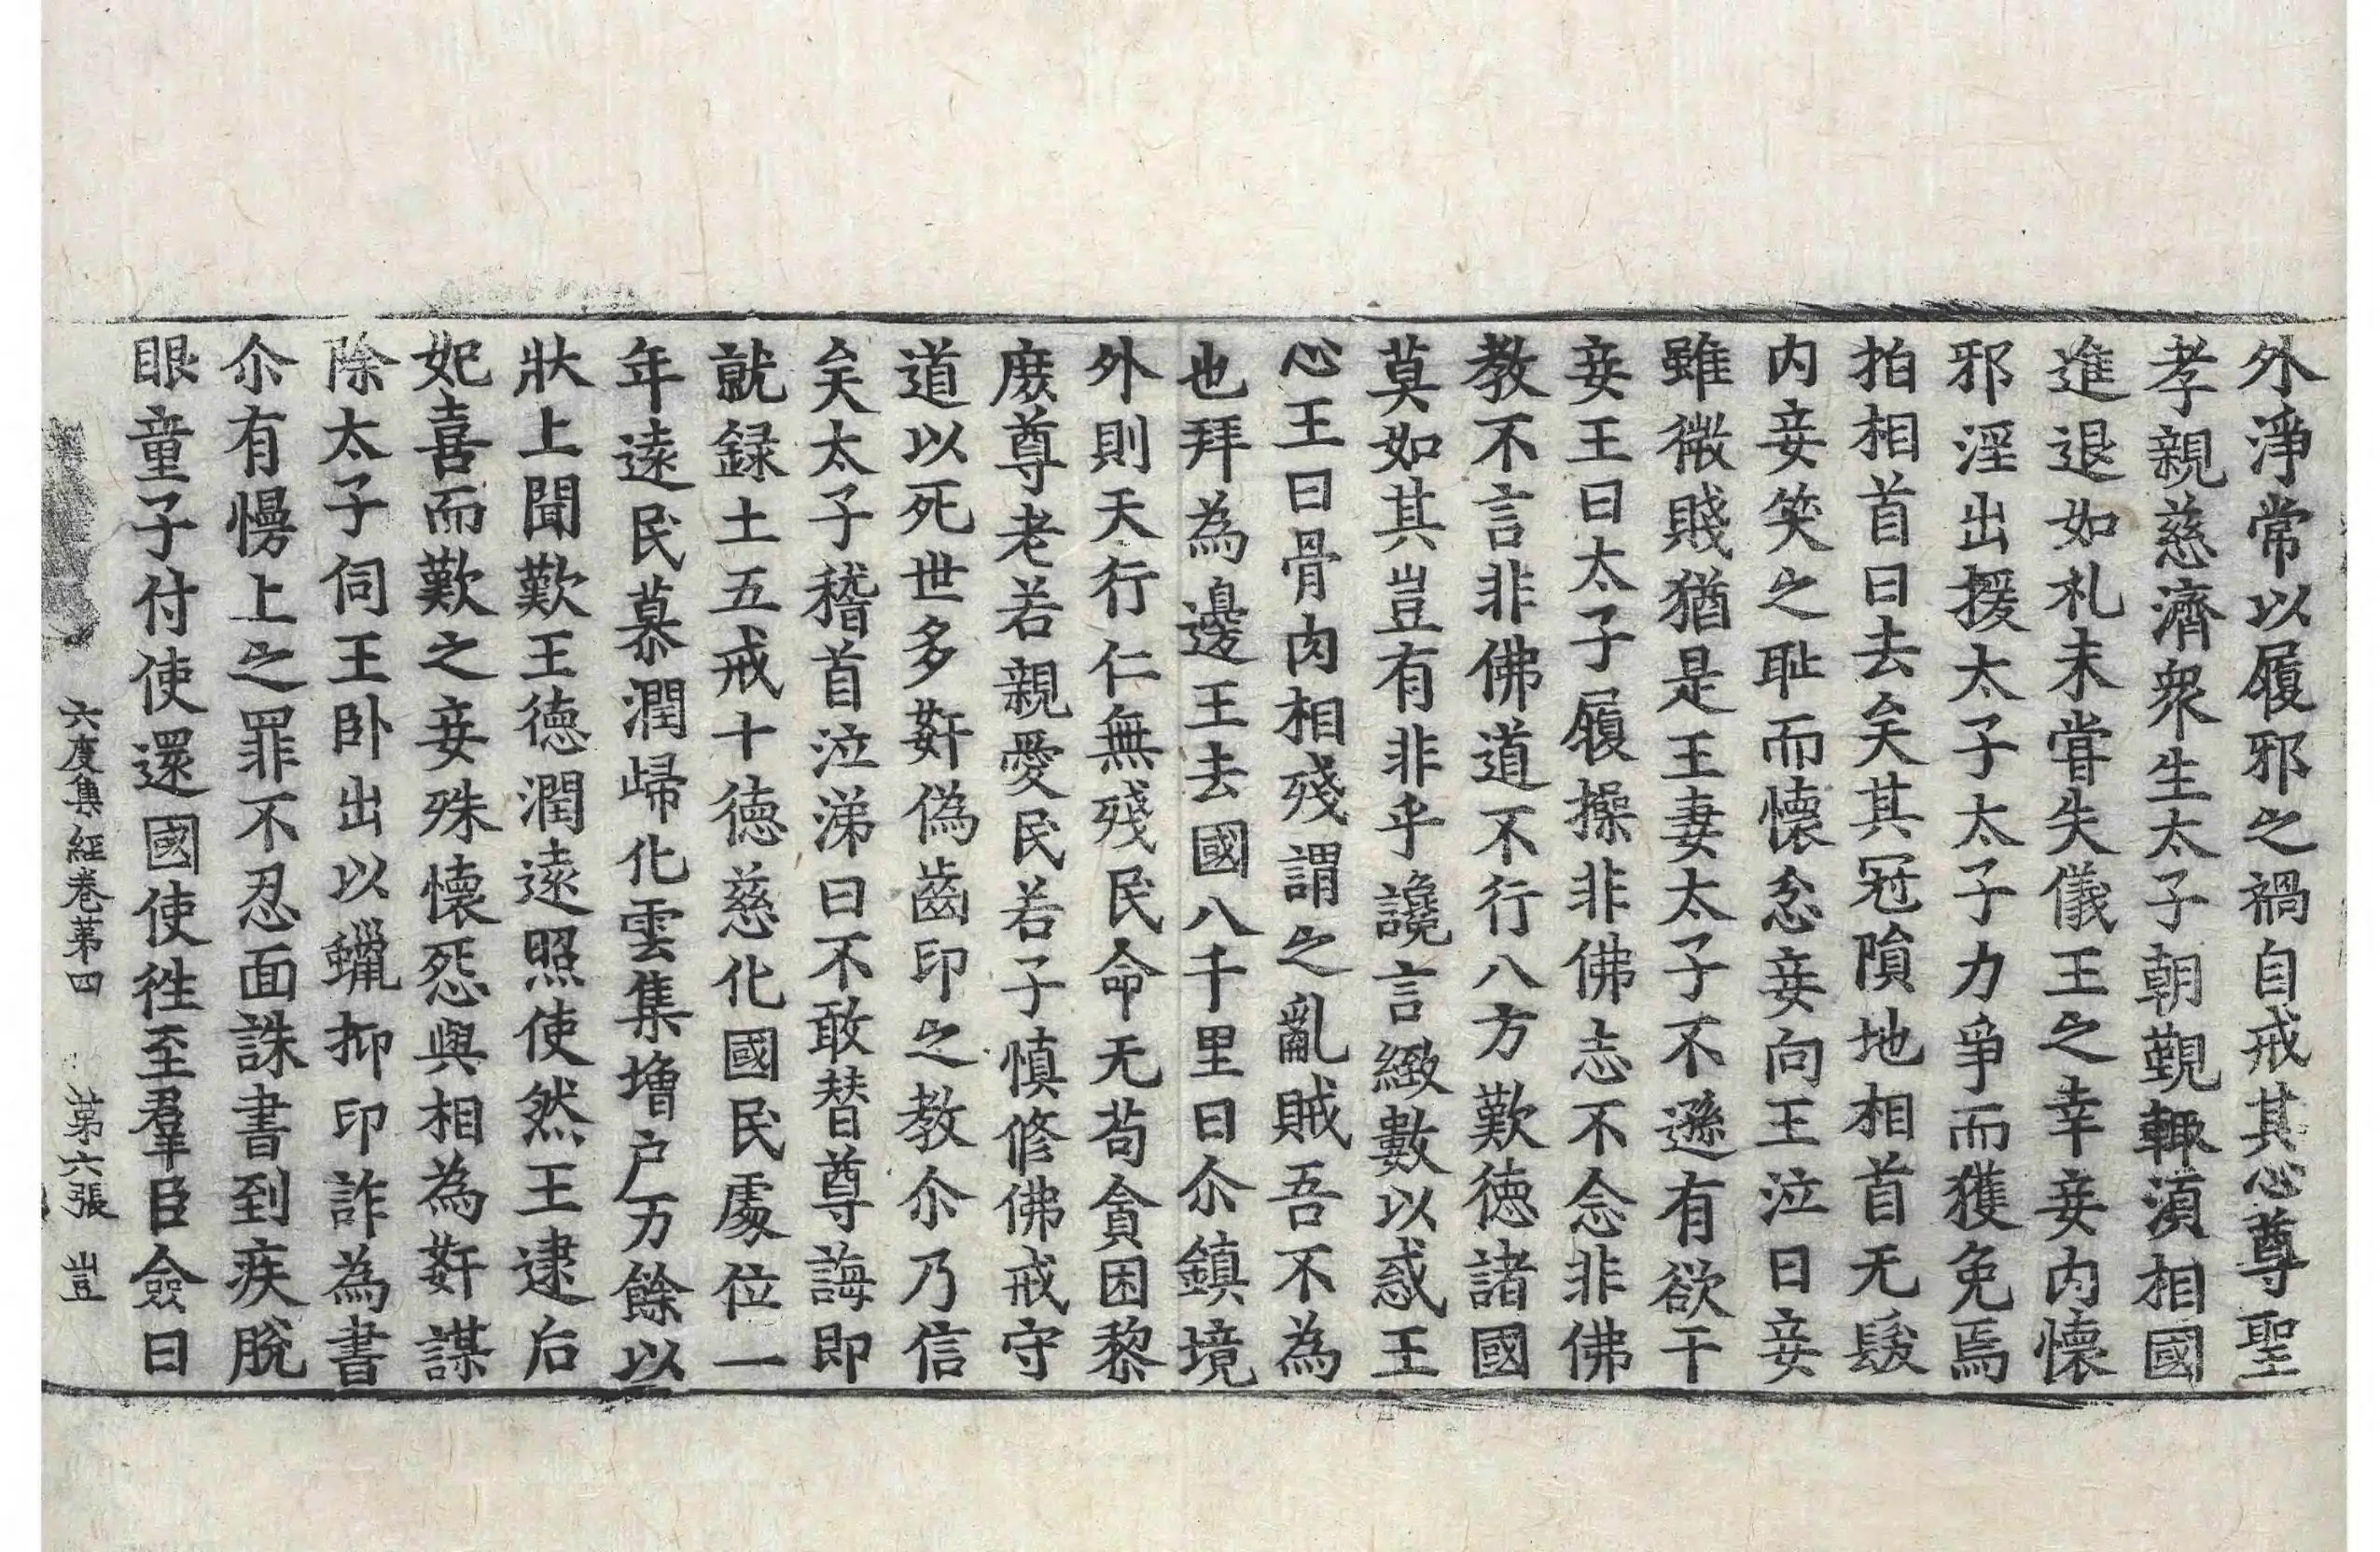 外淨常以履邪之禍自戒其心尊聖
孝親慈濟衆生太子朝覲輙湏相國
進退如礼未甞失儀王之幸妾内懷
邪淫出援太子太子力爭而獲免焉
拍相首曰去矣其冠隕地相首无髮
内妾笑之耻而懷忿妾向王泣曰妾
雖微賤猶是王妻太子不遜有欲干
妾王曰太子履操非佛志不念非佛
教不言非佛道不行八方歎德諸國
莫如其豈有非乎讒言緻數以惑王
心王曰骨肉相殘謂之亂賊吾不為
也拜為邊王去國八千里曰尒鎮境
外則天行仁無殘民命无苟貪困黎
庶尊老若親愛民若子慎修佛戒守
道以死世多姧偽齒印之教尒乃信
矣太子稽首泣涕曰不敢替尊誨即
就録土五戒十德慈化國民處位一
年遠民慕潤歸化雲集増户万餘以
狀上聞歎王德潤遠照使然王逮后
妃喜而歎之妾殊懷怨與相為姧謀
除太子伺王卧出以蠟抑印詐為書
尒有慢上之罪不忍面誅書到疾脫
眼童子付使還國使徃至羣臣僉曰
六度集經卷苐四 苐六張 豈